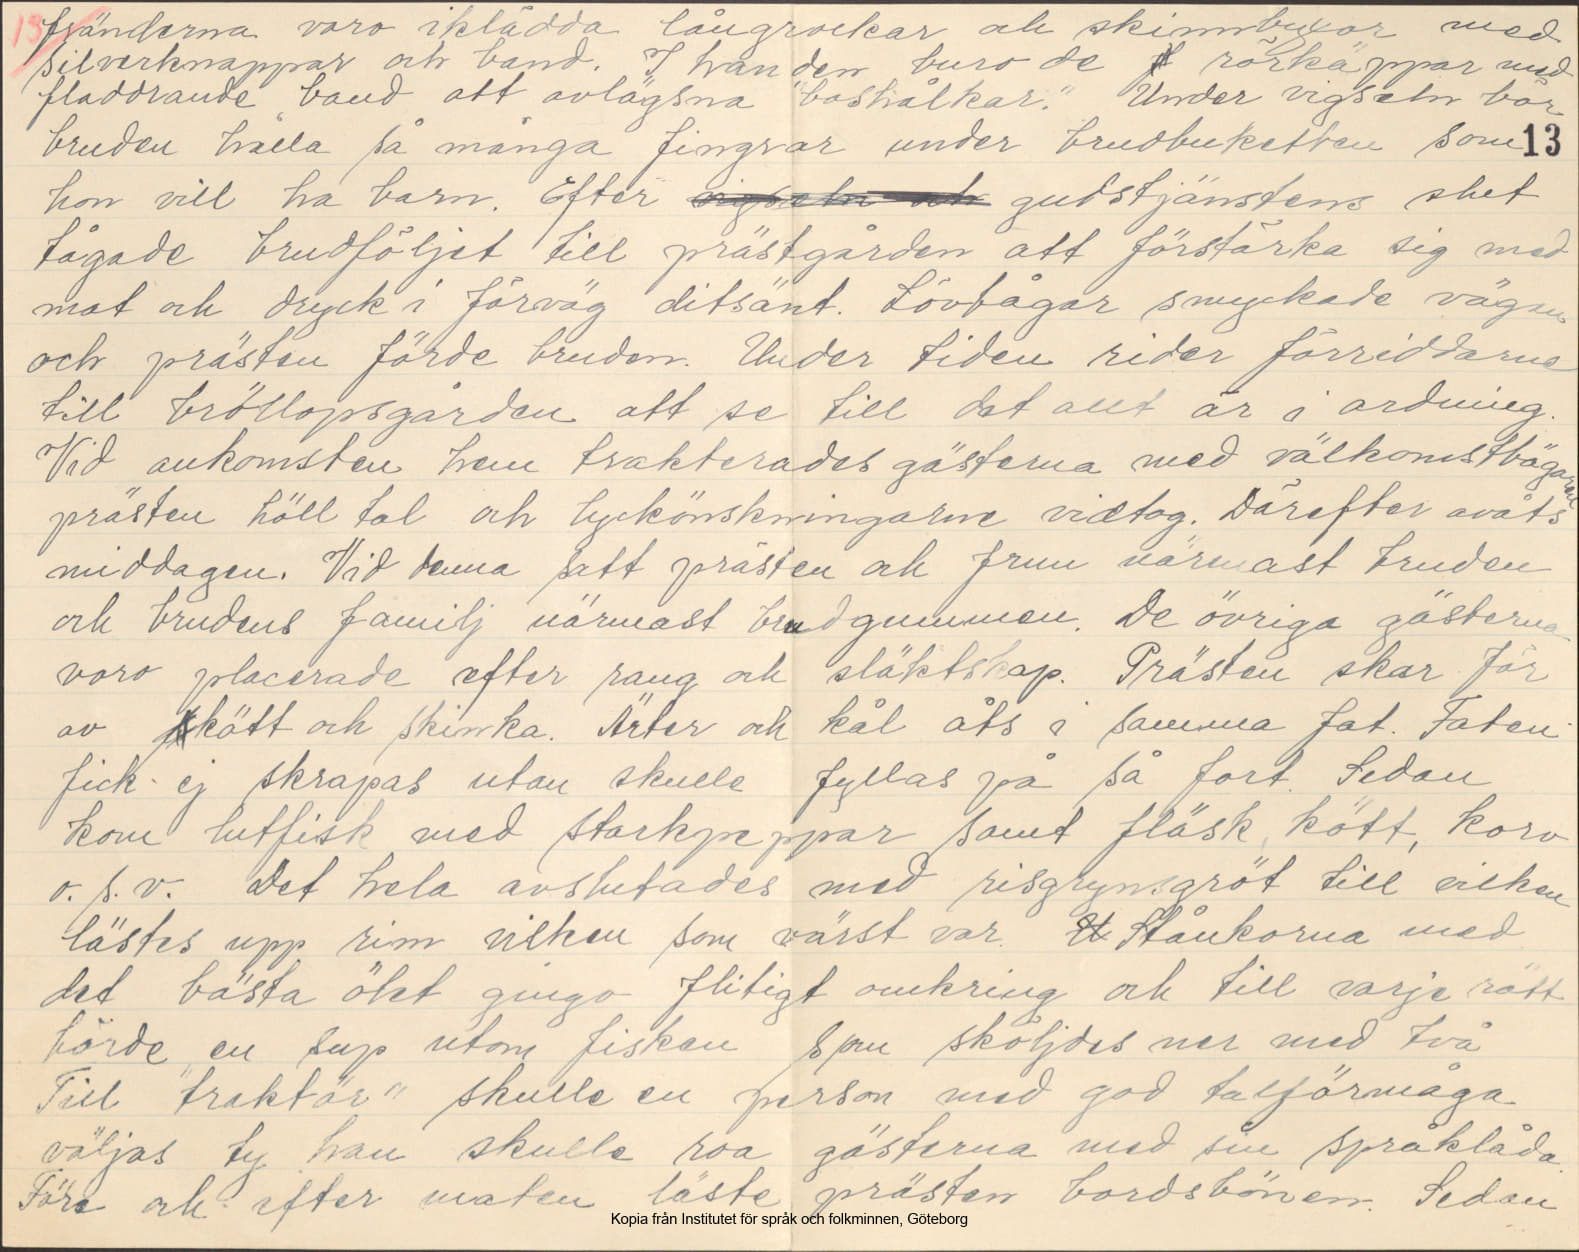 15
fränderna voro iklädda långrockar och skinnbyxor med
silverknappar och band. I handen buro de rörkäppar med
fladdrande band att avlägsna "baskålkar." Under vigseln bör
bruden hålla så många fingrar under brudbuketten som 13
hon vill ha barn. Efter vigseln och gudstjänstens slut
tågade brudföljet till prästgården att förstärka sig med
mat och dryck i förväg ditsänt. Lövbågar smyckade vägen
och prästen förde bruden. Under tiden rider förriddarne
till bröllopsgården att se till det allt är i ordning.
Vid ankomsten hem trakterades gästerna med välkomstbägaren
prästen höll tal och lyckönskningarne vidtog. Därefter avåts
middagen. Vid denna satt prästen och frun närmast bruden
och brudens familj närmast brudgummen. De övriga gästerna
voro placerade efter rang och släktskap. Prästen skar för
av kött och skinka. Ärter och kål åts i samma fat. Faten
fick ej skrapas utan skulle fyllas på så fort. Sedan
kom lutfisk med starkpeppar samt fläsk, kött, korv
o. s. v. Det hela avslutades med risgrynsgröt till vilken
lästes upp rim vilken som värst var. Stånkorna med
det bästa ölet gingo flitigt omkring och till varje rätt
hörde en sup utom fisken som sköljdes ner med två
Till "traktör" skulle en person med god talförmåga
väljas ty han skulle roa gästerna med sin språklåda.
Före och efter maten läste prästen bordsbönen. Sedan
Kopia från Institutet för språk och folkminnen, Göteborg